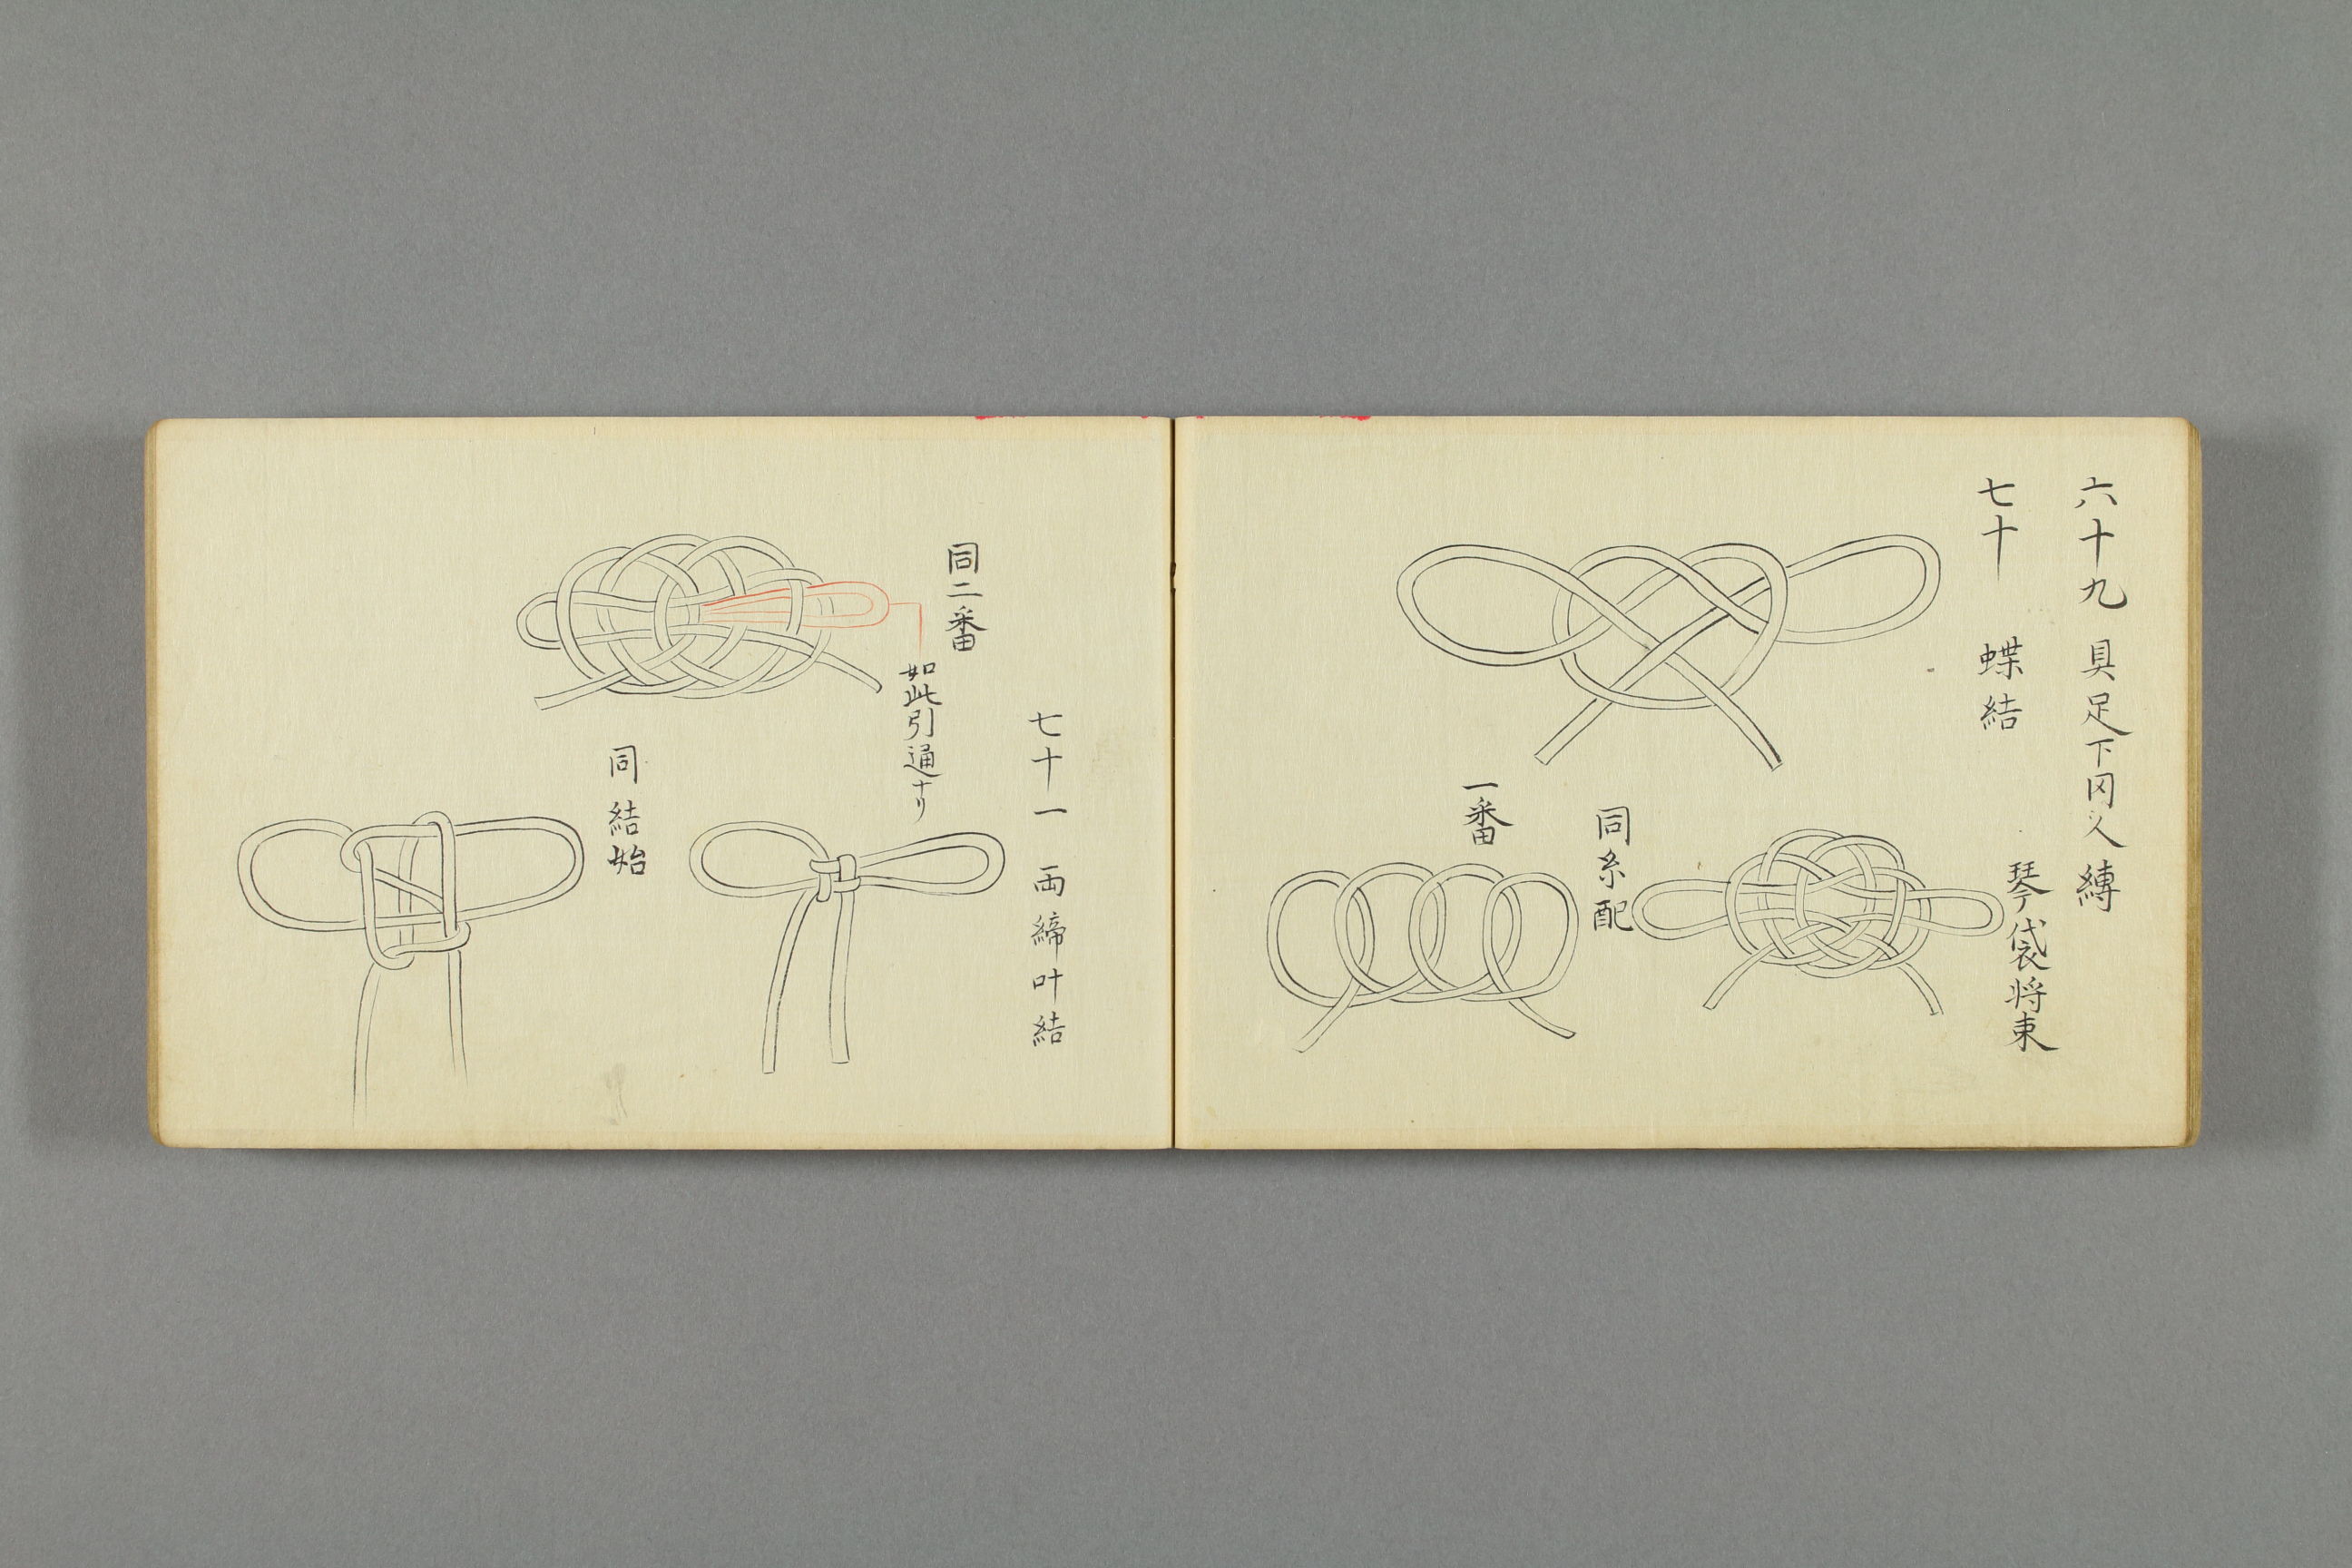 六十九 具足下冈乄縛
七十 蝶結
琴袋将束
同糸配
一番
七十一 両締叶結
同二番
如此引通ナリ
同結始